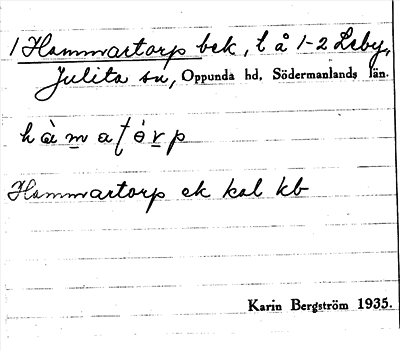 1 Hammartorp bek, l å 1-2 Leby,
Julita sn, Oppunda hd, Södermanlands län.
Hammartorp ek kal kb
Karin Bergström 1935.